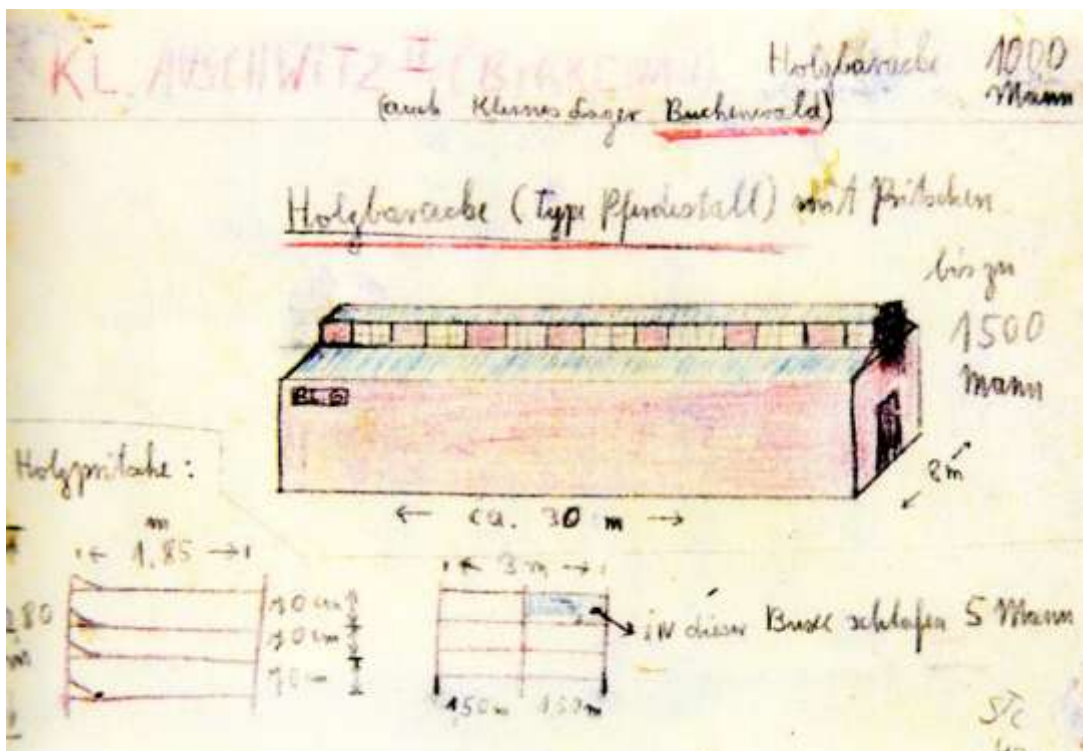 KL. AUSCHWITZ II (BIRKENAU)
Holzbaracke 1000 Mann
(auch Kleines Lager Buchenwald)
Holzbaracke (Type Pferdestall) mit Pritschen
bis zu
1500
Mann
BL. 6
8 m
ca. 30 m
Holzpritsche:
m
1,85
70 cm
70 cm
70 cm
2,80
m
3 m
in dieser Buxe schlafen 5 Mann
1,50 m 1,50 m